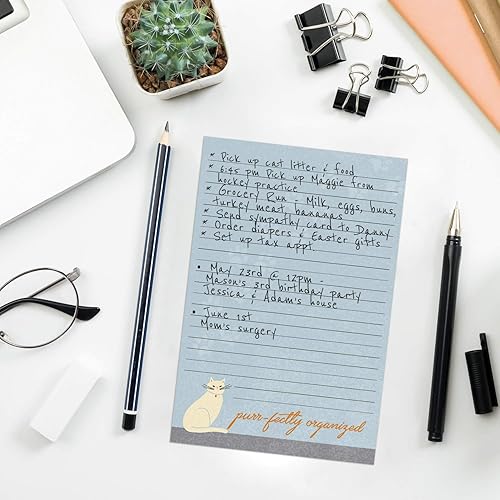 * Pick up cat litter & food
* 6:45 pm Pick up Maggie from
hockey practice
* Grocery Run : Milk, eggs, buns,
turkey meat, bananas
* Send sympathy card to Danny
* Order diapers & Easter gifts
* Set up tax appt.
• May 23rd @ 12pm
Mason's 3rd birthday party
Jessica & Adam's house
• June 1st
Mom's surgery
purr-fectly organized